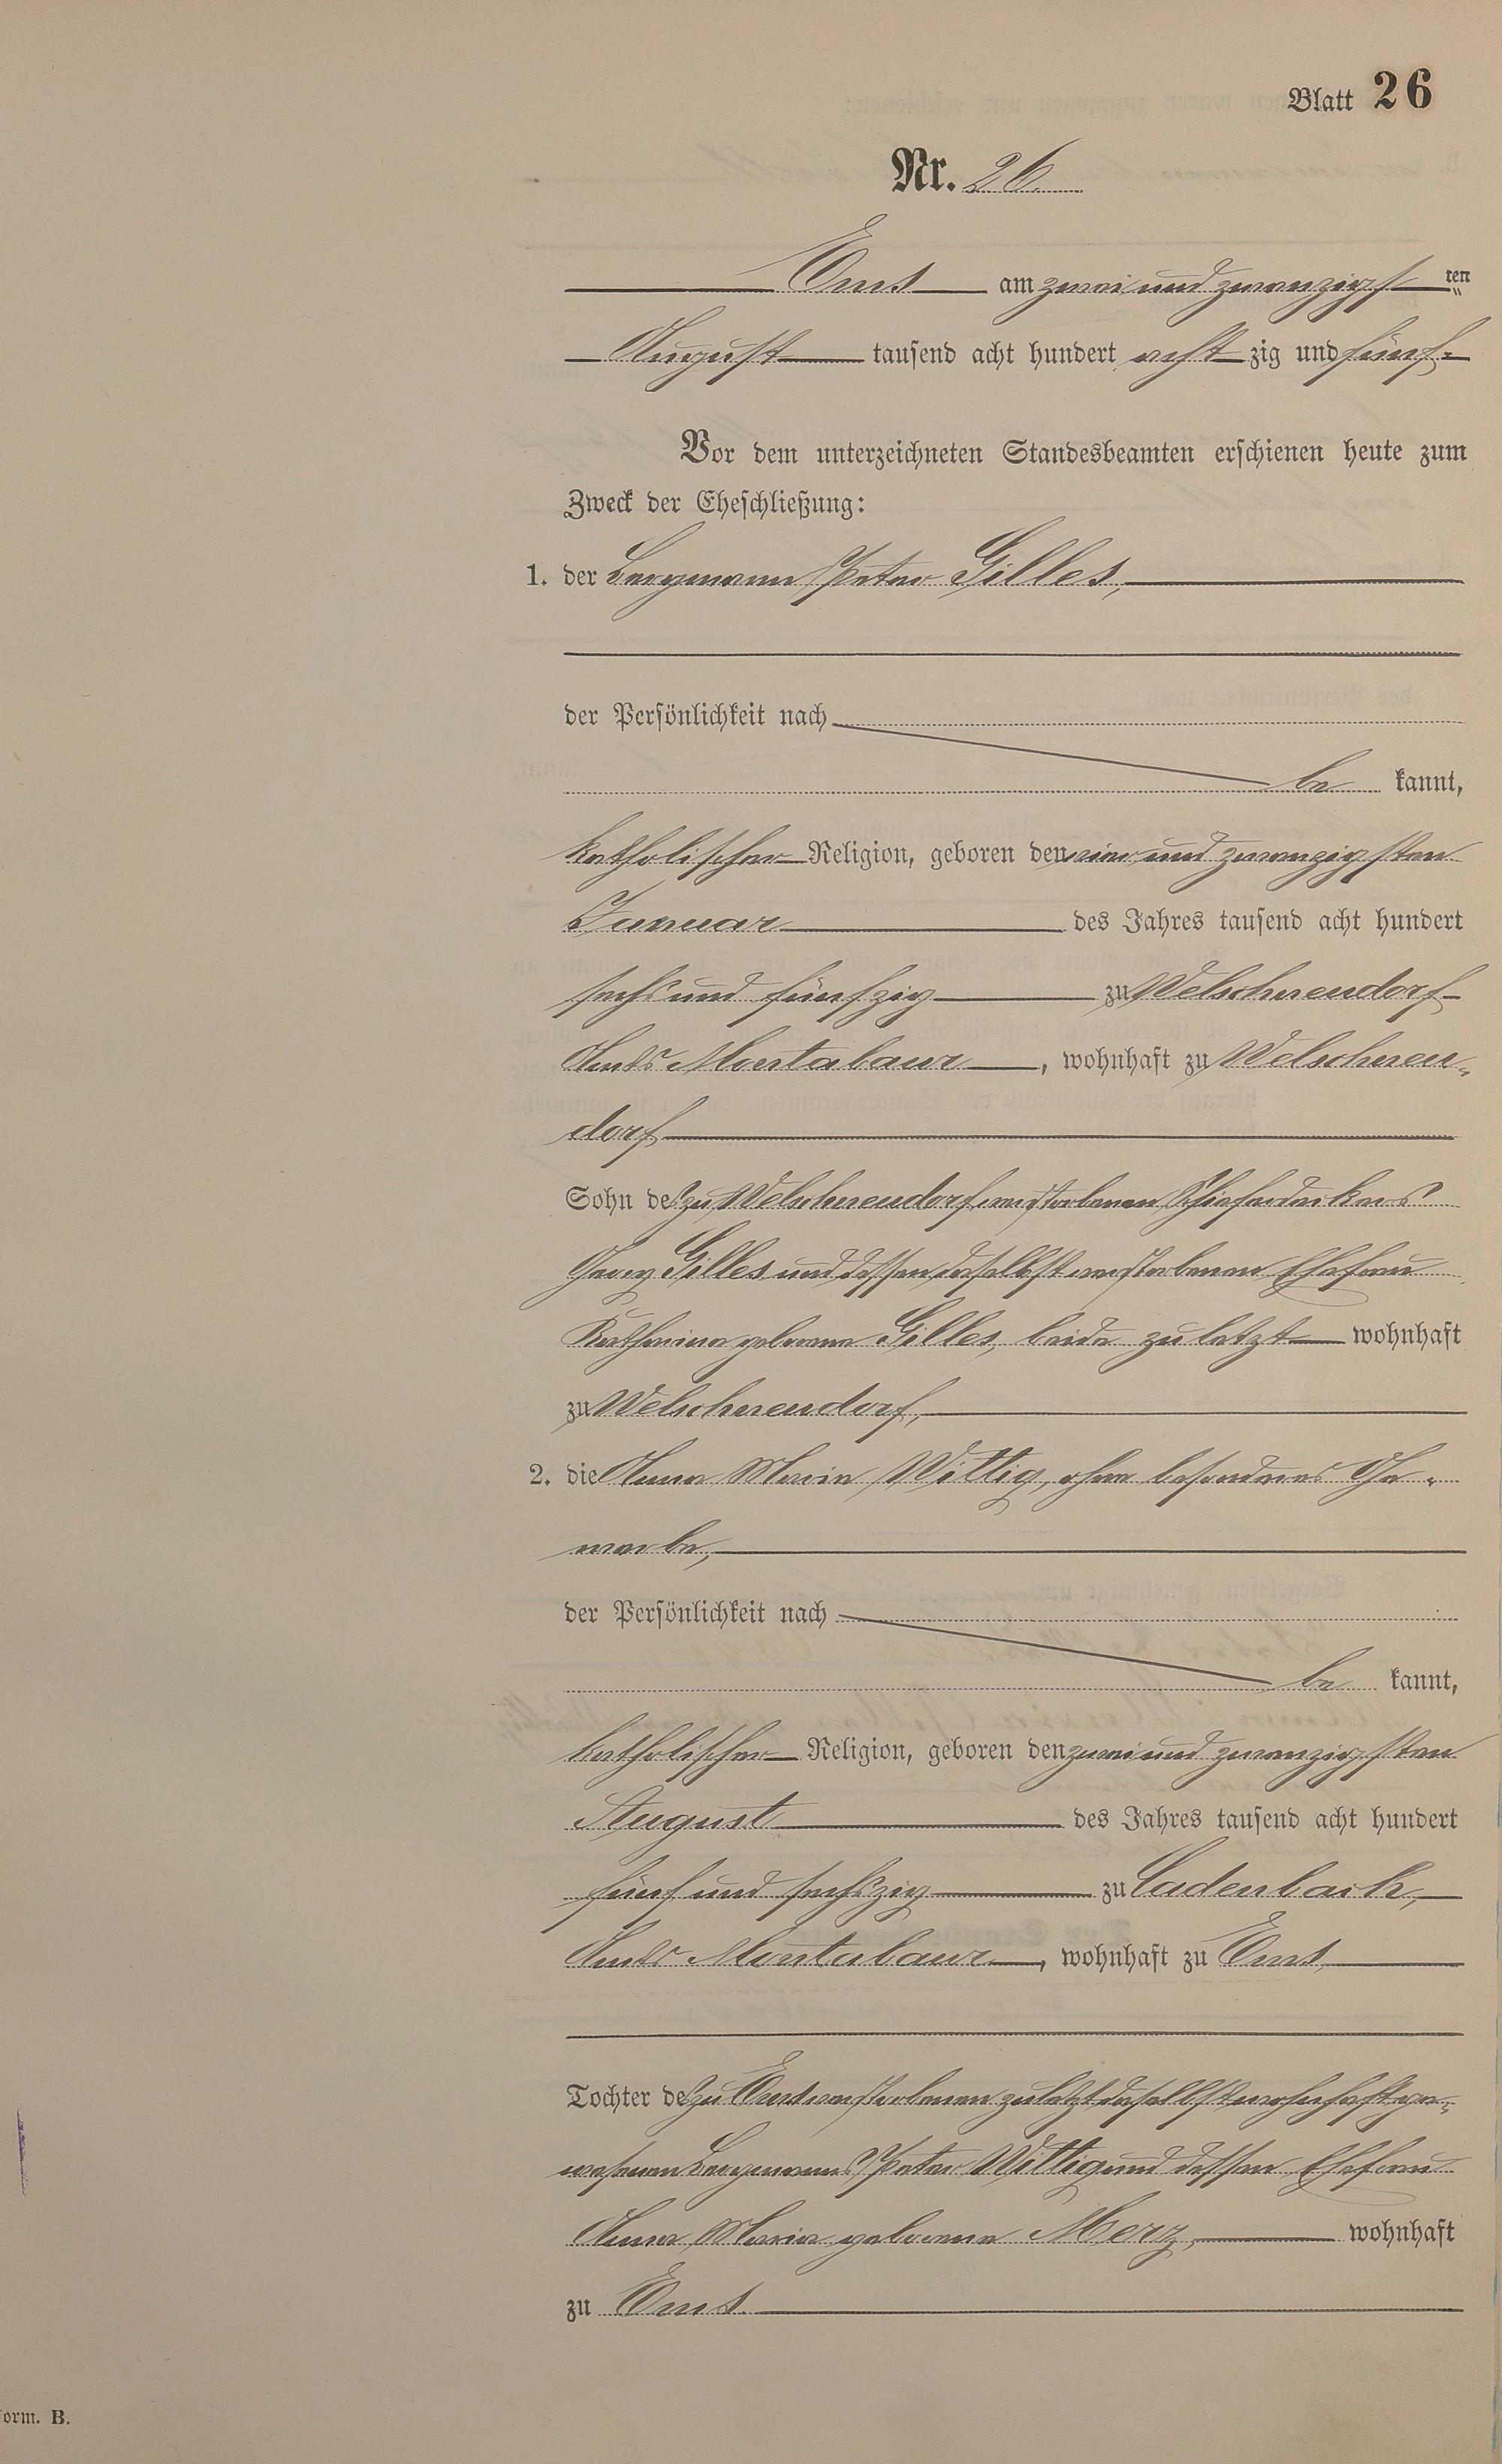 Blatt 26
Nr. 26.
Ems am zwei und zwanzigsten
August tausend acht hundert acht zig und fünf
Vor dem unterzeichneten Standesbeamten erschienen heute zum
Zweck der Eheschließung:
1. der Bergmann Peter Gilles,
der Persönlichkeit nach
be kannt,
katholischer Religion, geboren den vier und zwanzigsten
Januar des Jahres tausend acht hundert
sechs und fünfzig zu Welschneudorf
Amts Montabaur, wohnhaft zu Welschneu-
dorf
Sohn des zu Welschneudorf verstorbenen Schieferdeckers
Georg Gilles und dessen daselbst verstorbenen Ehefrau
Katharina geborene Gilles, beide zuletzt wohnhaft
zu Welschneudorf,
2. die Anna Maria Wittig, ohne besonderes Ge-
werbe,
der Persönlichkeit nach
be kannt,
katholischer Religion, geboren den zwei und zwanzigsten
August des Jahres tausend acht hundert
fünf und sechszig zu Cadenbach,
Amts Montabaur, wohnhaft zu Ems,
Tochter des zu Ems verstorbenen zuletzt daselbst wohnhaft ge-
wesenen Bergmanns Peter Wittig und dessen Ehefrau
Anna Maria geborene Merz, wohnhaft
zu Ems.
form. B.